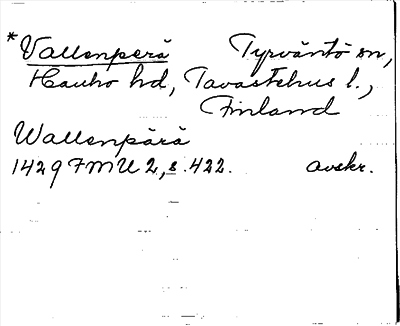 *Vallenperä Tyrväntö sn,
Hauho hd, Tavastehus l.,
Finland
Wallenpärä
1429 FMU 2, s. 422. avskr.